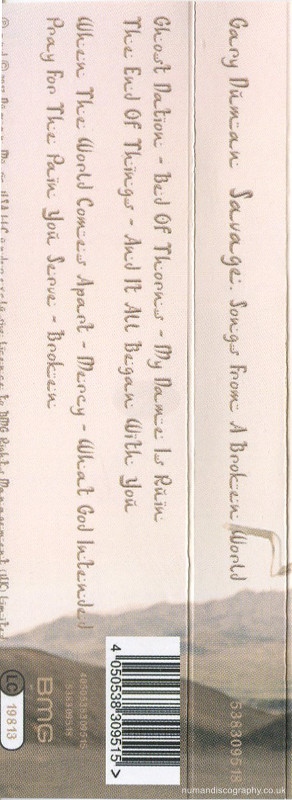 Gary Numan Savage: Songs From A Broken World
538309518
Ghost Nation - Bed Of Thorns - My Name Is Ruin
The End Of Things - And It All Began With You
When The World Comes Apart - Mercy - What God Intended
Pray For The Pain You Serve - Broken
licence to BMG Rights Management (UK) Limited
4 050538 309515 >
4050538309515
538309518
BMG
LC 19813
numandiscography.co.uk